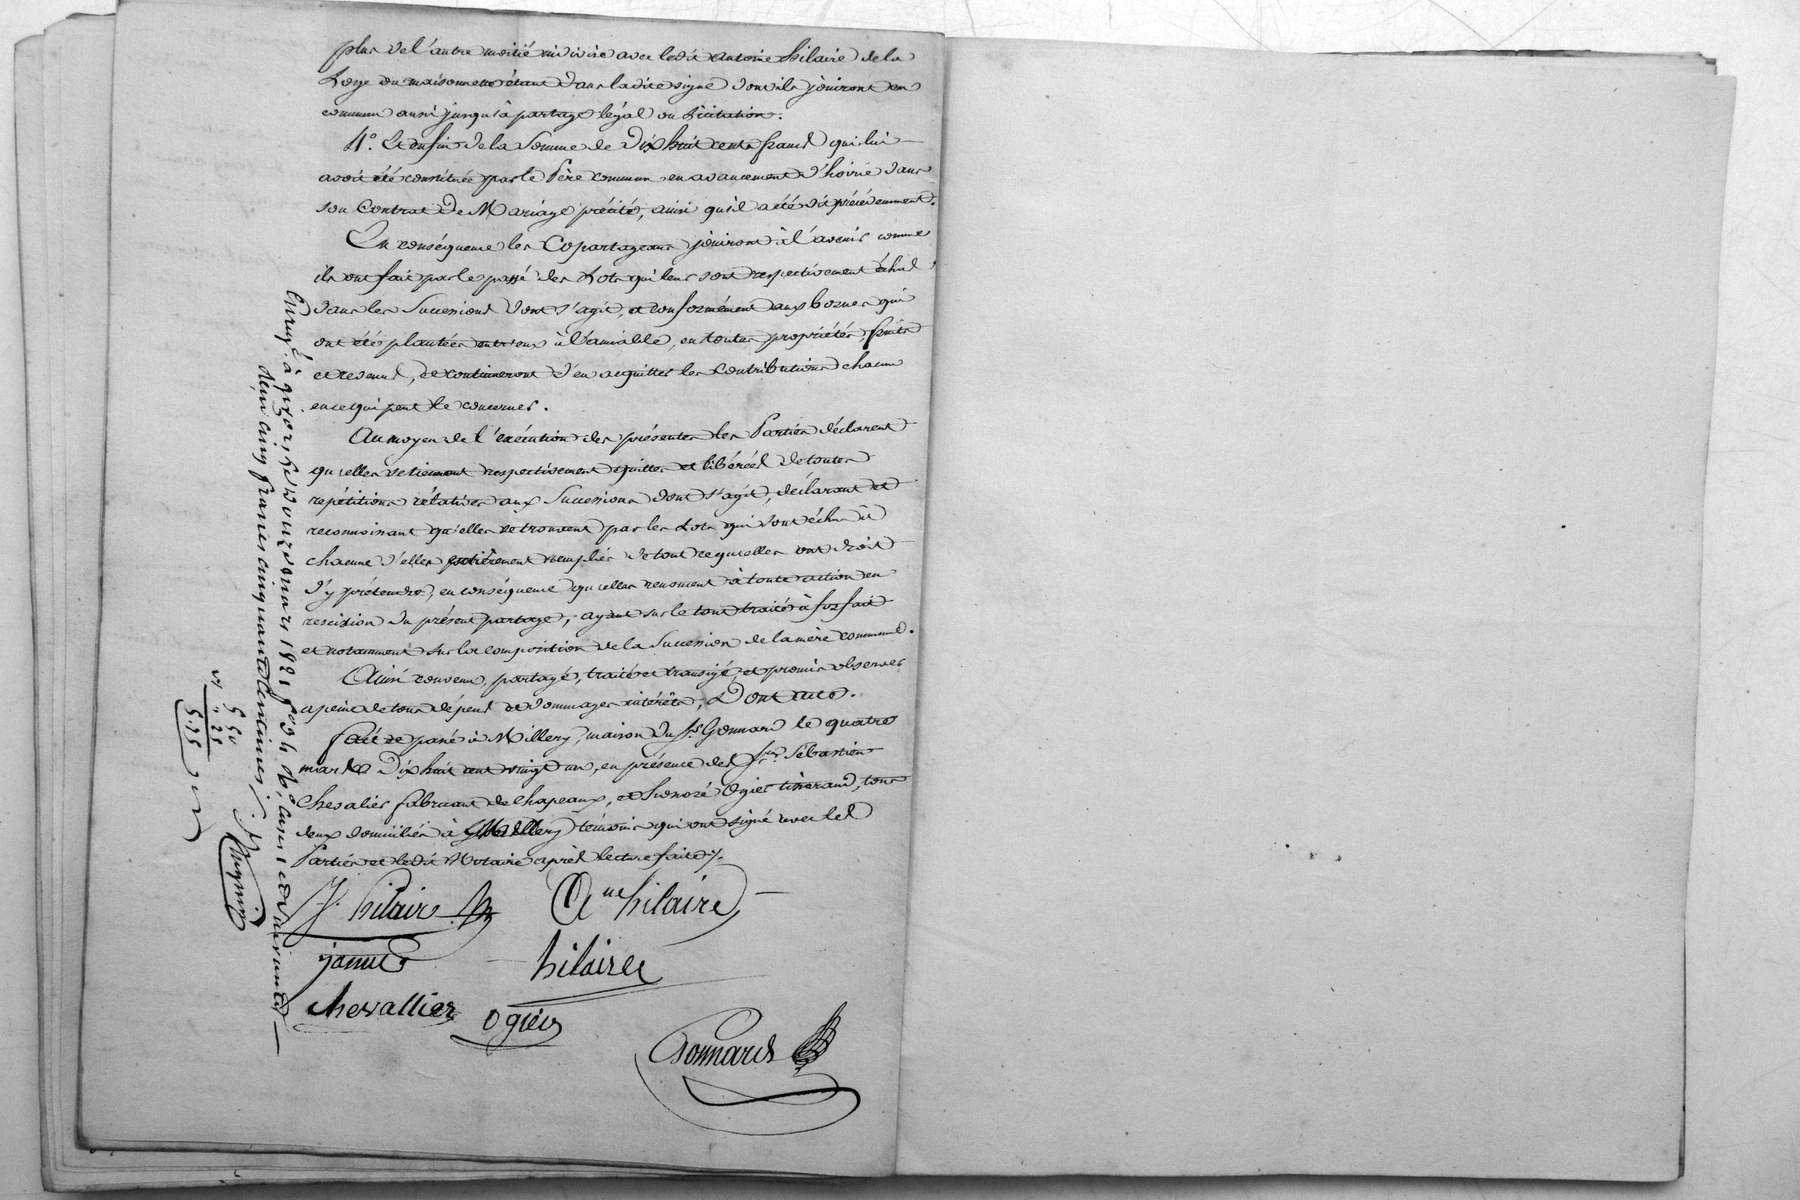 plus de l'autre moitié indivise avec ledit Antoine hilaire de la
Loge ou maisonnette étant dans ladite vigne dont ils jouiront en
commun aussi jusqu'à partage légal ou licitation.
4.° Et enfin de la Somme de Dix huit cents francs qui lui
avoit été constituée par le Père commun en avancement d'hoirie dans
son Contrat De Mariage précité, ainsi qu'il a été dit précédemment.
En conséquence les Copartageans jouiront à l'avenir comme
ils ont fait par le passé des Lots qui leur sont respectivement échus
dans les Successions dont s'agit, et conformément aux bornes qui
ont été plantées entr'eux à l'amiable, en toutes propriétés, fruits
et revenus, et continueront d'en acquitter les Contributions chacun
en ce qui peut le concerner.
Au moyen de l'exécution des présentes les Parties déclarent
qu'elles se tiennent respectivement quittes et libérées de toutes
répétitions rélatives aux Successions dont s'agit, déclarant et
reconnoissant qu'elles se trouvent par les Lots qui sont échus à
chacune d'elles entièrement remplies de tout ce qu'elles ont droit
d'y prétendre, en conséquence qu'elles renoncent à toute action en
rescision du présent partage, ayant sur le tout traité à forfait
et notamment sur la composition de la Succession de la mère commune.
Ainsi convenu, partagé, traité et transigé, et promis observer
a peine de tous dépens et dommages intérêts, Dont acte.
fait et passé à Millery, maison du Sr. Gonnard le quatre
mars Dix huit cent vingt un, en présence des Srs. Sébastien
Chevalier fabricant de chapeaux, et honoré Ogier tisserand, tous
deux domiciliés à Millery témoins qui ont signé avec les
Parties et ledit Notaire après lecture faite ./.
J. hilaire
Ane hilaire
jamet
hilaire
chevallier
ogier
Gonnard
Enregé à givors le douze mars 1821 fo 34 Ro, case 1 et suivantes
reçu cinq francs cinquante centimes
5 50
" 25
5.75